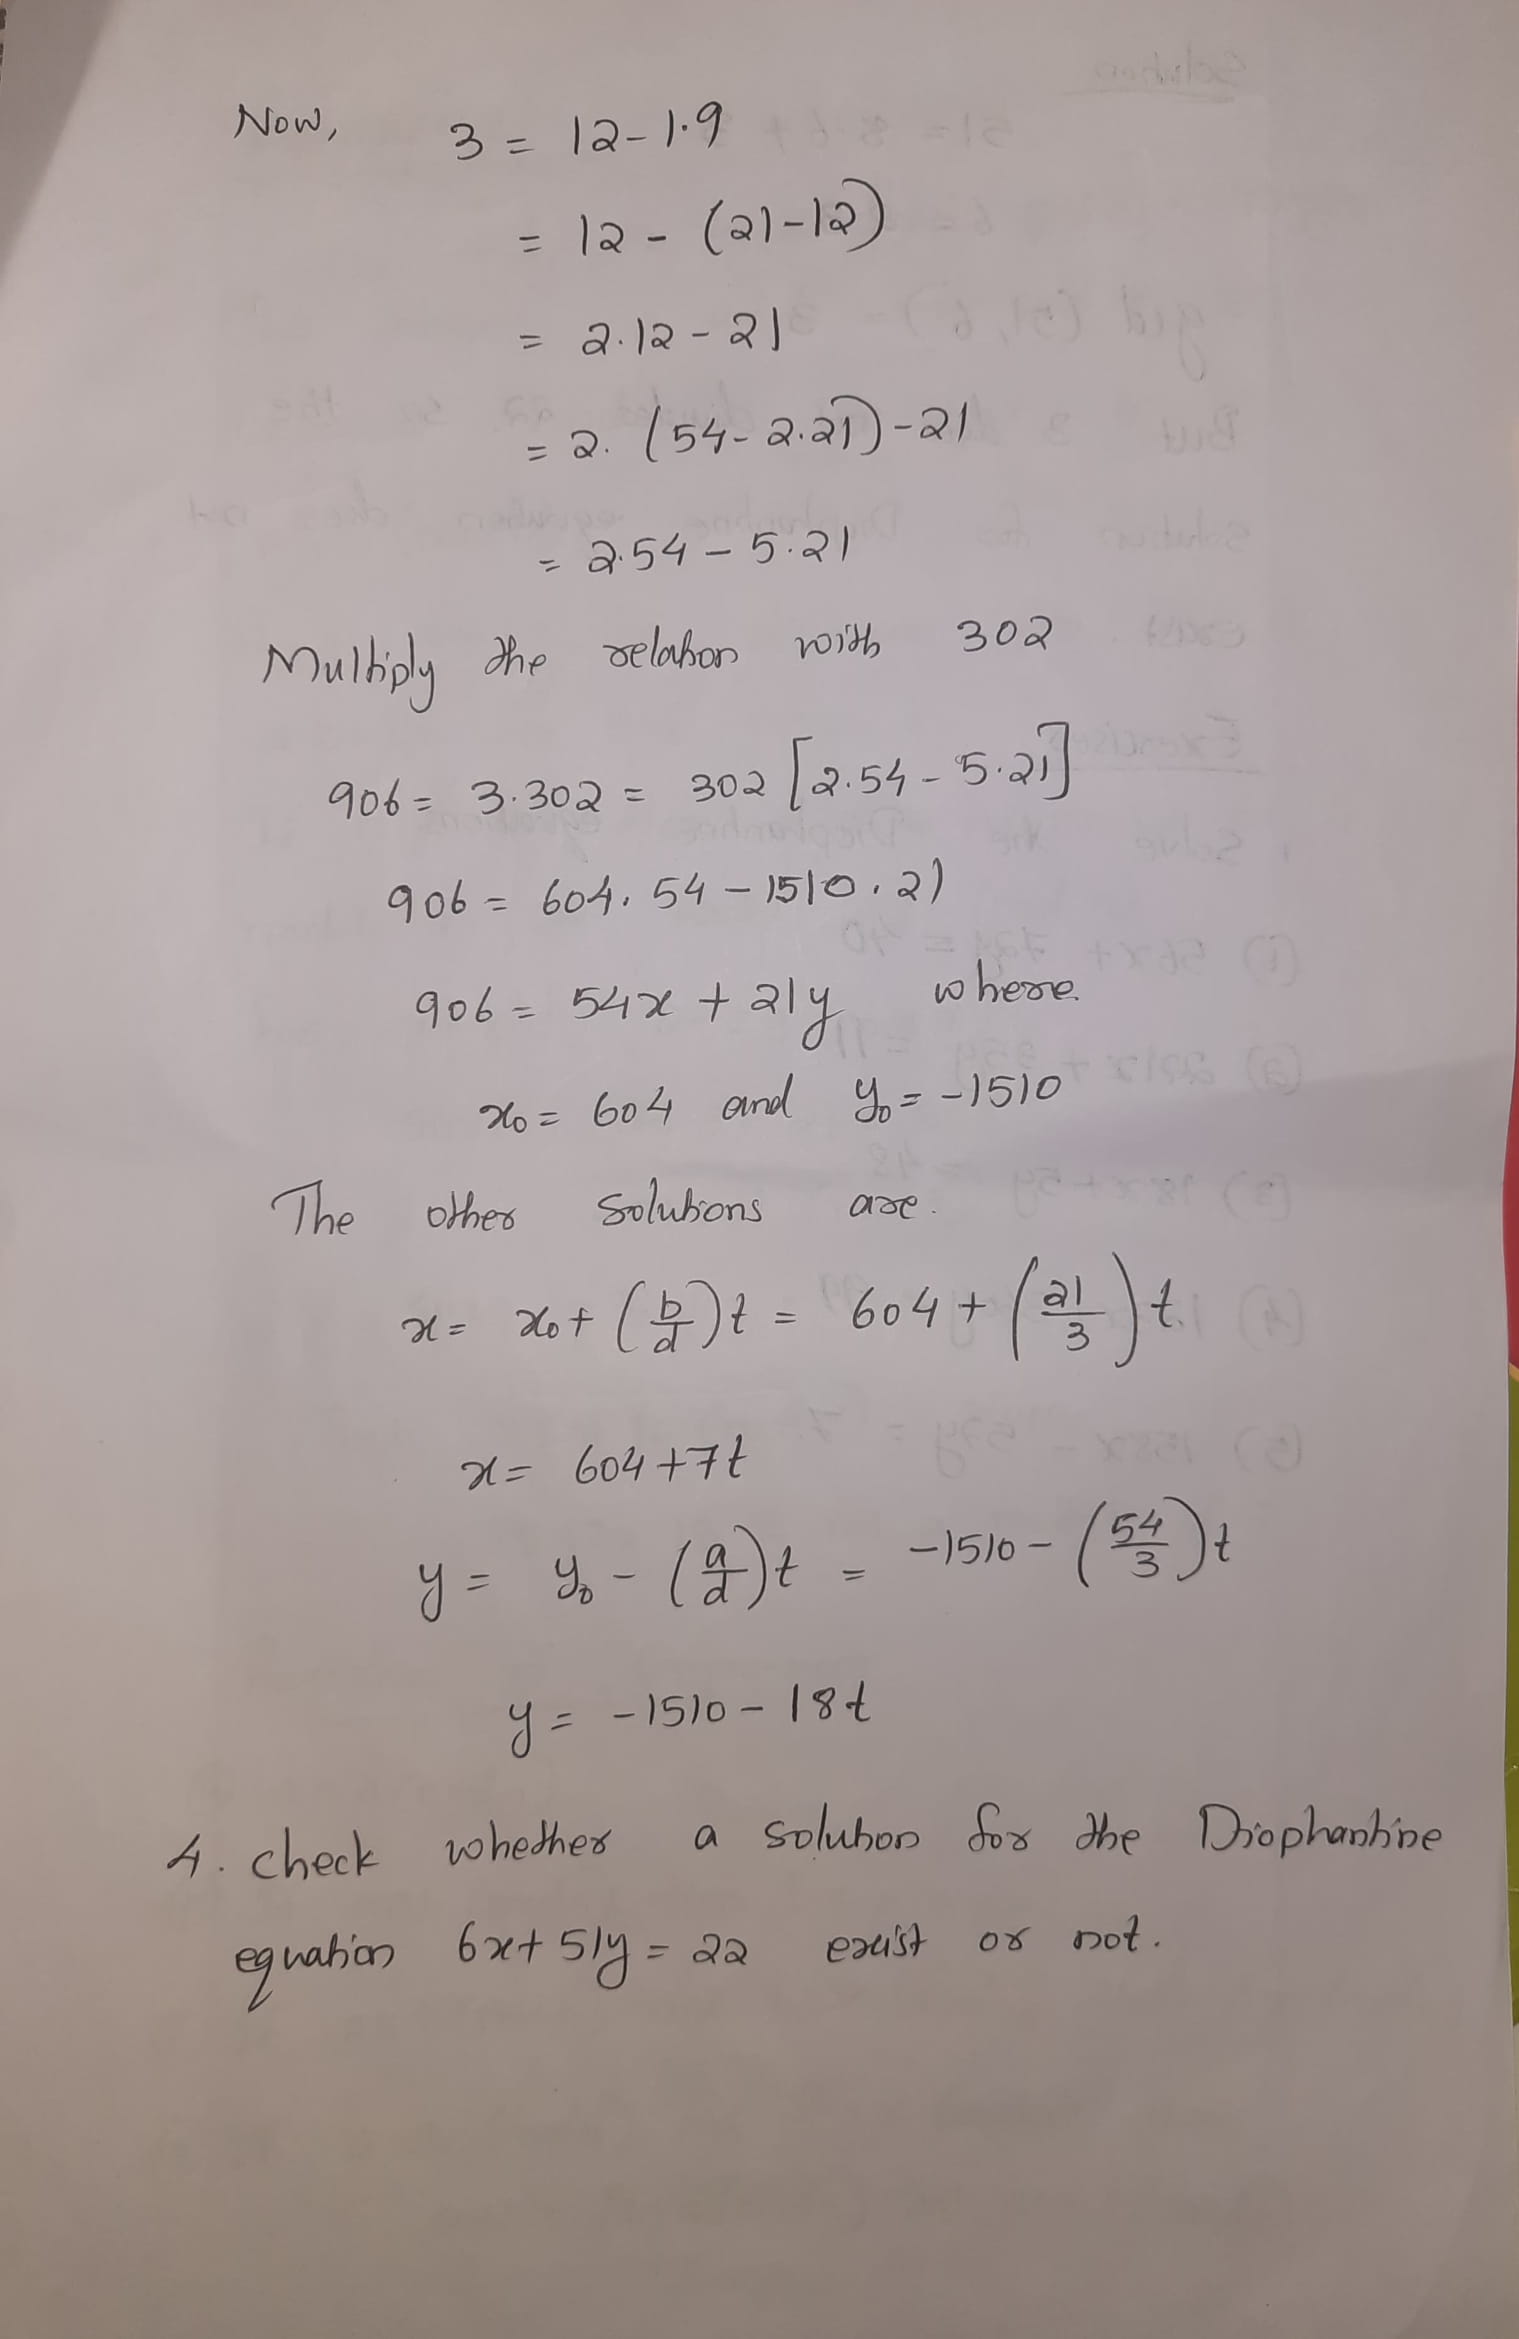 Now, 3 = 12-1.9
= 12 - (21-12)
= 2.12 - 21
= 2. (54-2.21)-21
= 2.54 - 5.21
Multiply the relation with 302
906 = 3.302 = 302 [2.54 - 5.21]
906 = 604. 54 - 1510. 21
906 = 54x + 21y where
x₀ = 604 and y₀ = -1510
The other solutions are.
x = x₀ + (b/d)t = 604 + (21/3)t
x = 604 + 7t
y = y₀ - (a/d)t = -1510 - (54/3)t
y = -1510 - 18t
4. check whether a solution for the Diophantine
equation 6x+51y = 22 exist or not.